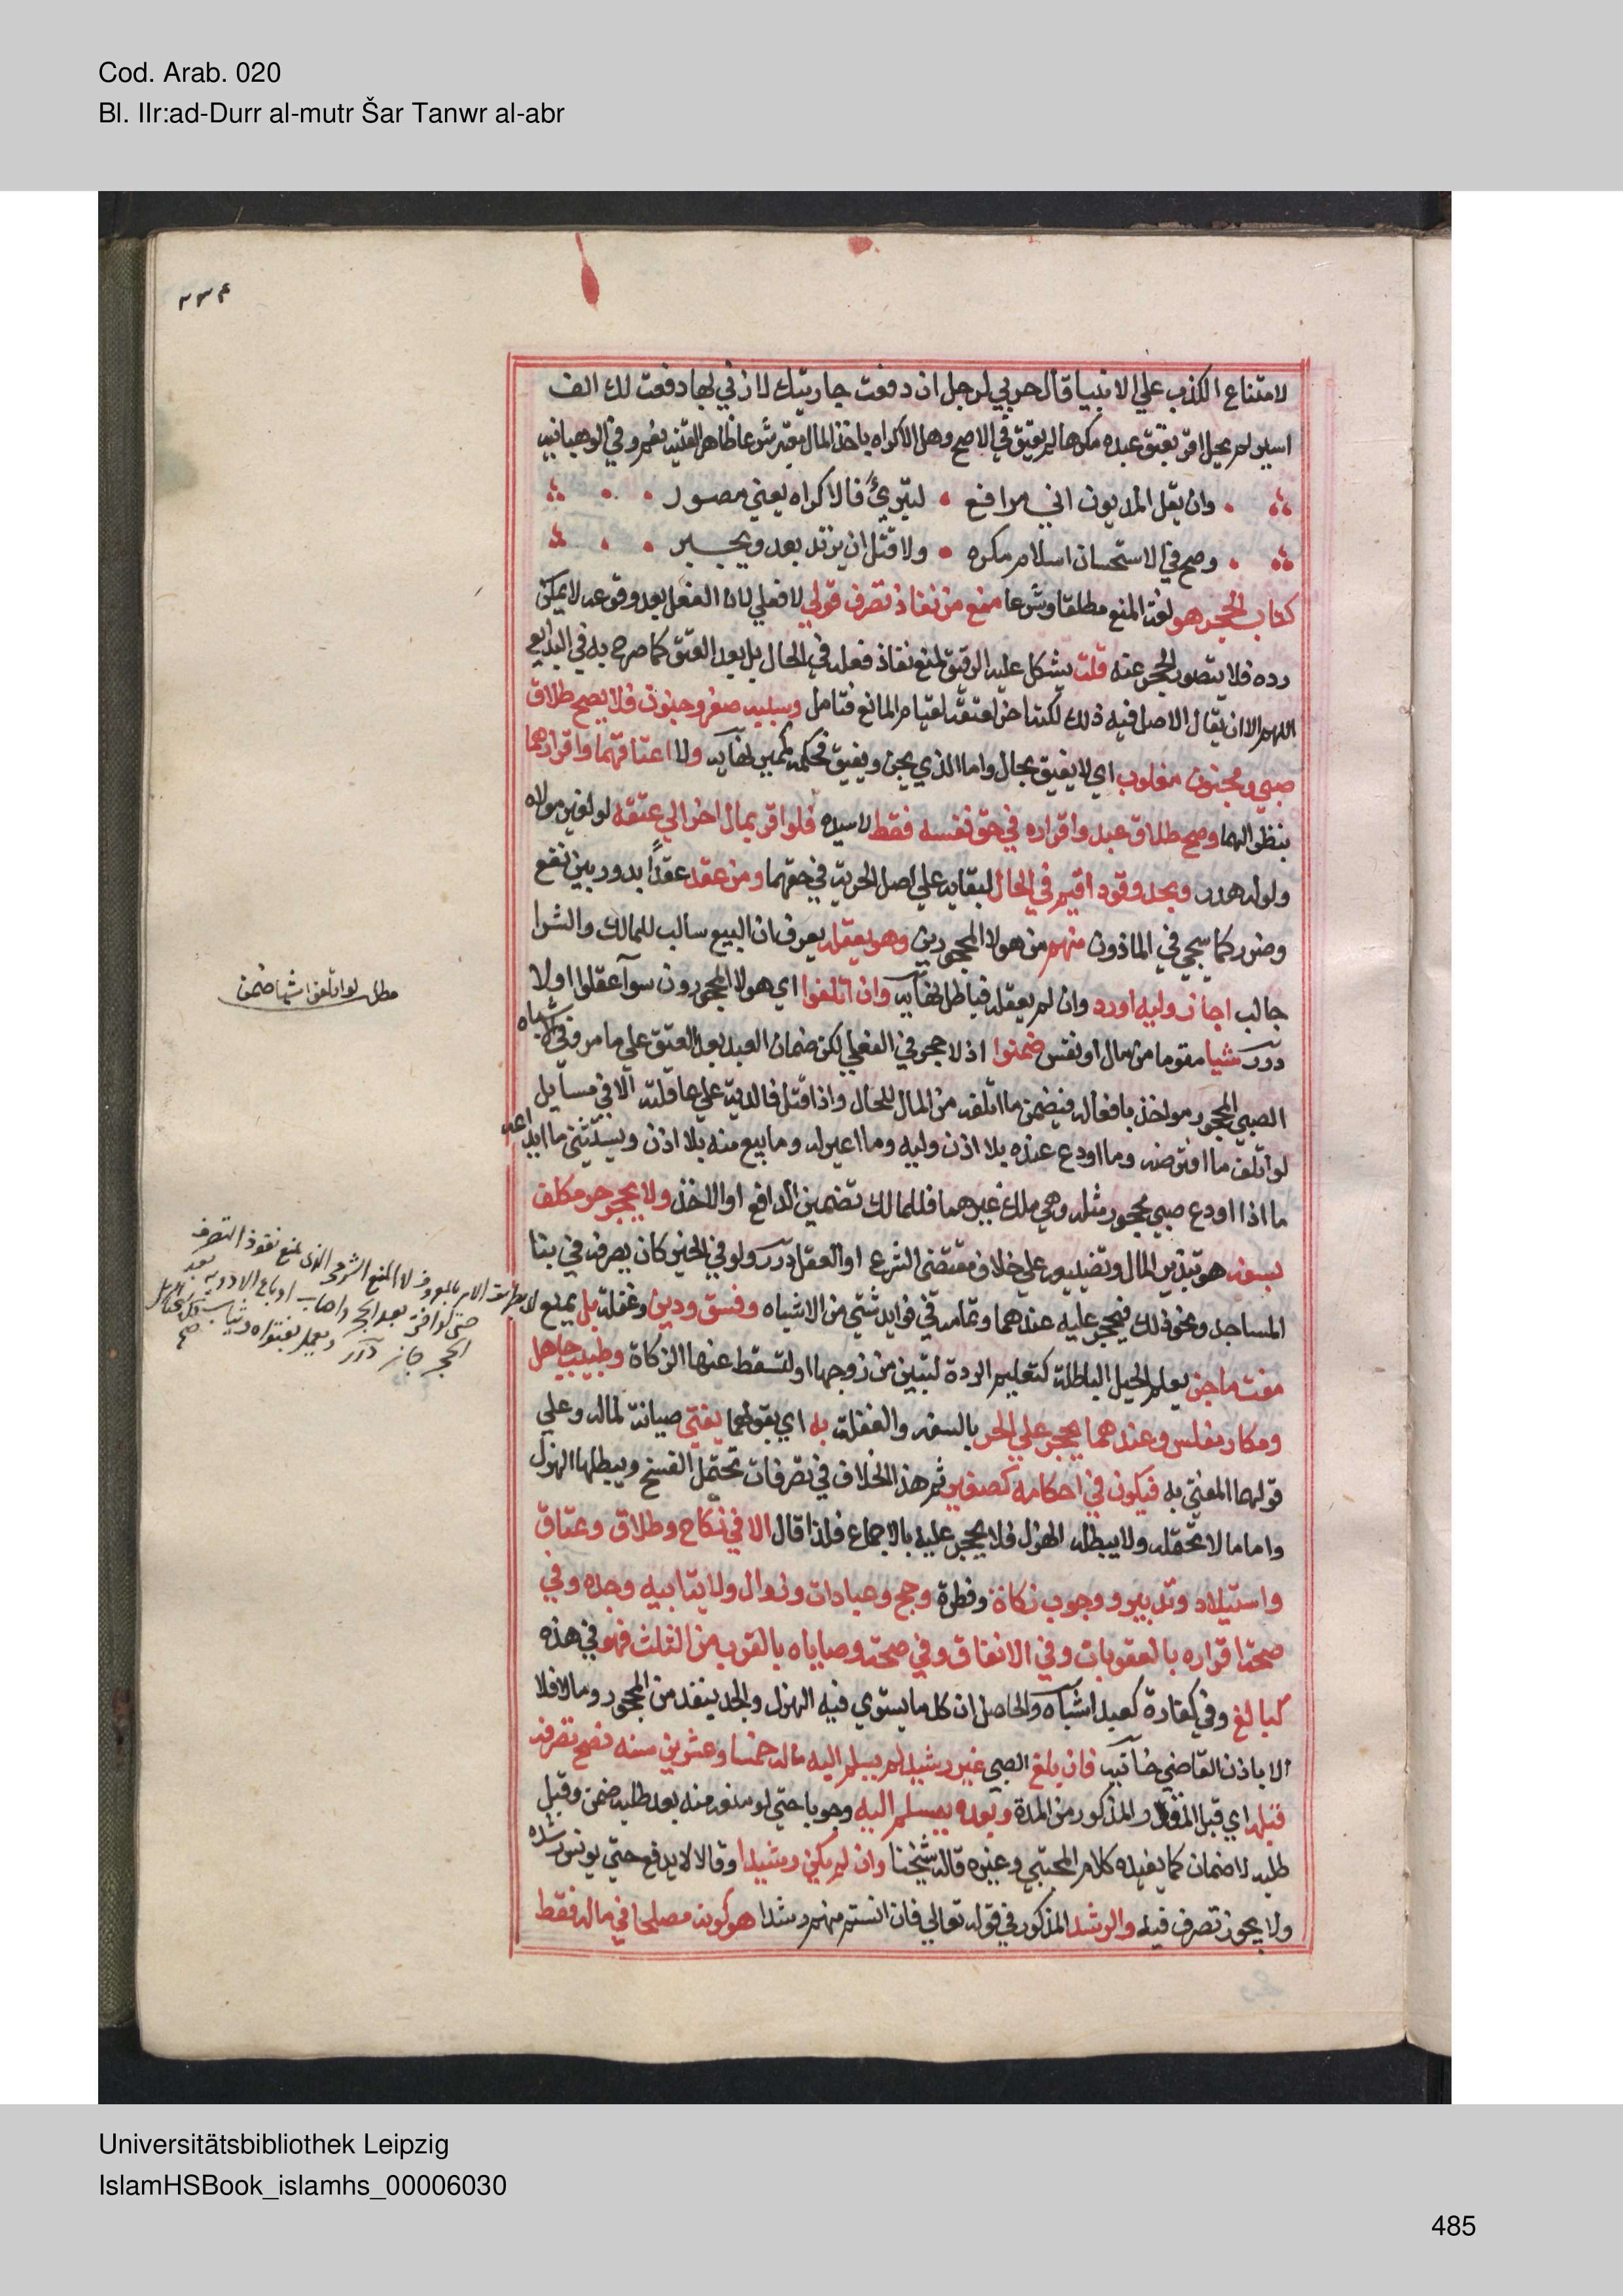 Cod. Arab. 020
Bl. IIr:ad-Durr al-mutr Šar Tanwr al-abr
لامتناع الكذب علي الانبيا قال حربي لرجل ان دفعت جاريتك لازني بها دفعت لك الف
اسير لم يحل اقر بعتق عبده مكرها لم يعتق في الاصح وهل الاكراه باخذ المال معتبر شرعا ظاهر القنيه نعم وفي الوهبانيه
وان يقل المديون اني مرافع • لتبرئ فالاكراه يعني مصور
وصح في الاستحسان اسلام مكره • ولا قتل ان يرتد بعد ويجبر
كتاب الحجر هو لغة المنع مطلقا وشرعا منع من نفاذ تصرف قولي لا فعلي لان الفعل بعد وقوعه لا يمكن
رده فلا يتصور الحجر عنه قلت يشكل عليه الرقيق لمنع نفاذ فعله في الحال بل بعد العتق كما صرح به في البدايع
اللهم الا ان يقال الاصل فيه ذلك لكنه اخر لعتقه لقيام المانع فتامل وسببه صغر وجنون فلا يصح طلاق
صبي ومجنون مغلوب اي لا يفيق بحال واما الذي يجن ويفيق فحكمه كمميز نهايه ولا اعتاقهما واقرارهما
بنظر الهما وصح طلاق عبد واقراره في حق نفسه فقط لا سيده فلو اقر بمال اخر الي عتقه لو لغير مولاه
ولو له هدر وبحد وقود اقيم في الحال لبقايه علي اصل الحرية في حقهما ومن عقد عقدًا يدور بين نفع
وضرر كما سيجي في الماذون منهم من هولا المحجورين وهو يعقله يعرف ان البيع سالب للمالك والشرا
جالب اجاز وليه او رد وان لم يعقله فباطل نهايه وان اتلفوا اي هولا المحجورون سوآ عقلوا اولا
درر شيا مقوما من مال او نفس ضمنوا اذ لا حجر في الفعلي لكن ضمان العبد بعد العتق علي ما مر وفي الاشباه
الصبي المحجور مواخذ بافعاله فيضمن ما اتلفه من المال للحال واذا قتل فالدية علي عاقلته الا في مسايل
لو اتلف ما اقترضه وما اودع عنده بلا اذن وليه وما اعير له وما بيع منه بلا اذن ويستثني ما ايداعه
ما اذا اودع صبي محجور مثله وهي ملك غيرهما فللمالك تضمين الدافع او الاخذ ولا يحجر حر مكلف
بسفه هو تبذير المال وتضييعه علي خلاف مقتضي الشرع او العقل درر ولو في الخير كان يصرفه في بنا
المساجد ونحو ذلك فيحجر عليه عندهما وتمامه في فوايد شتي من الاشباه وفسق ودين وغفلة بل يمنع
مفت ماجن يعلم الحيل الباطلة كتعليم الردة لتبين من زوجها او لتسقط عنها الزكاة وطبيب جاهل
ومكار مفلس وعندهما يحجر علي الحر بالسفه والغفلة به اي بقولهما يفتي صيانة لماله وعلي
قولهما المفتي به فيكون في احكامه كصغير ثم هذا الخلاف في تصرفات تحتمل الفسخ ويبطلها الهزل
واما ما لا يحتمله ولا يبطله الهزل فلا يحجر عليه بالاجماع فلذا قال الا في نكاح وطلاق وعتاق
واستيلاد وتدبير ووجوب زكاة وفطرة وحج وعبادات وزوال ولاية ابيه وجده وفي
صحة اقراره بالعقوبات وفي الانفاق وفي صحة وصاياه بالقرب من الثلث فهو في هذه
كبالغ وفي كفارة كعبد اشباه والحاصل ان كل ما يستوي فيه الهزل والجد ينفذ من المحجور وما لا فلا
الا باذن القاضي خانيه فان بلغ الصبي غير رشيد لم يسلم اليه ماله خمسا وعشرين سنه فصح تصرفه
قبله اي قبل المقدار المذكور من المدة وبعده يسلم اليه وجوبا حتي لو منعه منه بعد طلبه ضمن وقبل
طلبه لا ضمان كما يفيده كلام المجتبي وغيره قاله شيخنا وان لم يكن رشيدا وقالا لا يدفع حتي يونس رشده
ولا يجوز تصرف فيه والرشد المذكور في قوله تعالي فان انستم منهم رشدا هو كونه مصلحا في ماله فقط
مطلب لو اتلفوا شيا ضمن
لا بطريق الامر بالمعروف لا المنع الشرعي الذي يمنع نفوذ التصرف
حتي لو افتي بعد الحجر واصاب او باع الادوية بعد
الحجر جاز درر
صح
Universitätsbibliothek Leipzig
IslamHSBook_islamhs_00006030
485